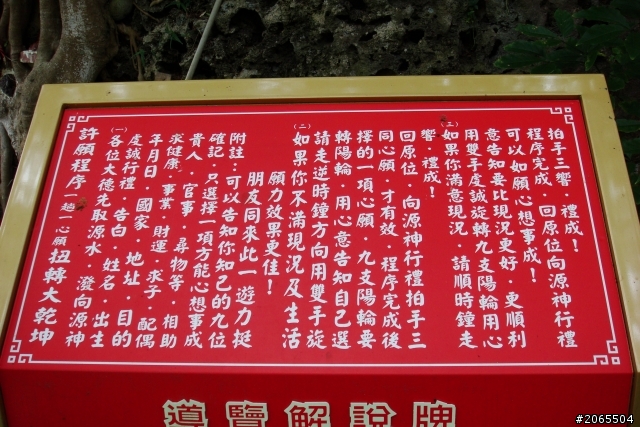 許願程序(一趟一心願)扭轉大乾坤
(一)各位大德先取源水.潑向源神
虔誠行禮.告白.姓名.出生
年月日.國家.地址.目的
求健康.事業.財運.求子.配偶
貴人.官事.尋物等.相助
確記:只選擇一項方能心想事成
附註:可以告知你知己的九位
朋友同來此一遊力挺
願力效果更佳!
(二)如果你不滿現況及生活
請走逆時鐘方向用雙手旋
轉陽輪.用心意告知自己選
擇的一項心願.九支陽輪要
同心願.才有效.程序完成後
回原位.向源神行禮拍手三
響.禮成!
(三)如果你滿意現況.請順時鐘走
用雙手虔誠旋轉九支陽輪用心
意告知要比現況更好.更順利
可以如願心想事成!
程序完成.回原位向源神行禮
拍手三響.禮成!
導覽解說牌
#2065504